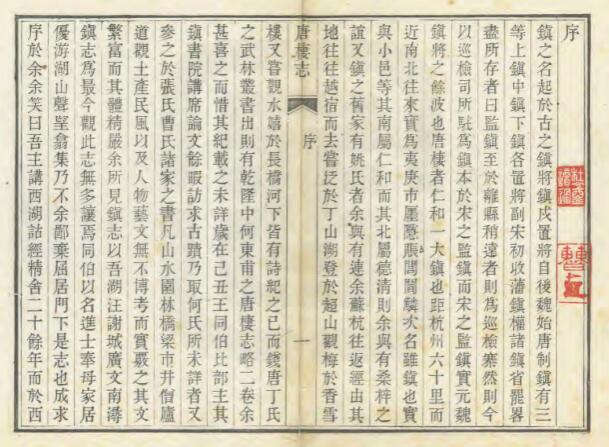 序
鎮之名起於古之鎮將鎮戍置將自後魏始唐制鎮有三
等上鎮中鎮下鎮各置將副宋初收藩鎮權諸鎮省罷畧
盡所存者曰監鎮至於離縣稍遠者則為巡檢寨然則今
以巡檢司所駐為鎮本於宋之監鎮而宋之監鎮實元魏
鎮將之餘波也唐棲者仁和一大鎮也距杭州六十里而
近南北往來實為夷庚市廛慇賑闤闠驎次名雖鎮也實
與小邑等其南屬仁和而其北屬德清則余與有桑梓之
誼又鎮之舊家有姚氏者余與有連余蘇杭往返經由其
地往往越宿而去嘗泛於丁山湖登於超山觀梅於香雪
唐棲志
序
一
樓又喜觀水嬉於長橋河下皆有詩紀之已而錢唐丁氏
之武林叢書出則有乾隆中何東甫之唐棲志略二卷余
甚喜之而惜其紀載之未詳歲在己丑王同伯比部主其
鎮書院講席論文餘暇訪求古蹟乃取何氏所未詳者又
參之於張氏曹氏諸家之書凡山水園林橋梁市井僧廬
道觀土產民風以及人物藝文無不博考而實覈之其文
繁富而其體精嚴余所見鎮志以吾湖汪謝城廣文南潯
鎮志為最今觀此志無多讓焉同伯以名進士奉母家居
優游湖山聲望翕集乃不余鄙棄屈居門下是志也成求
序於余余笑曰吾主講西湖詁經精舍二十餘年而於西